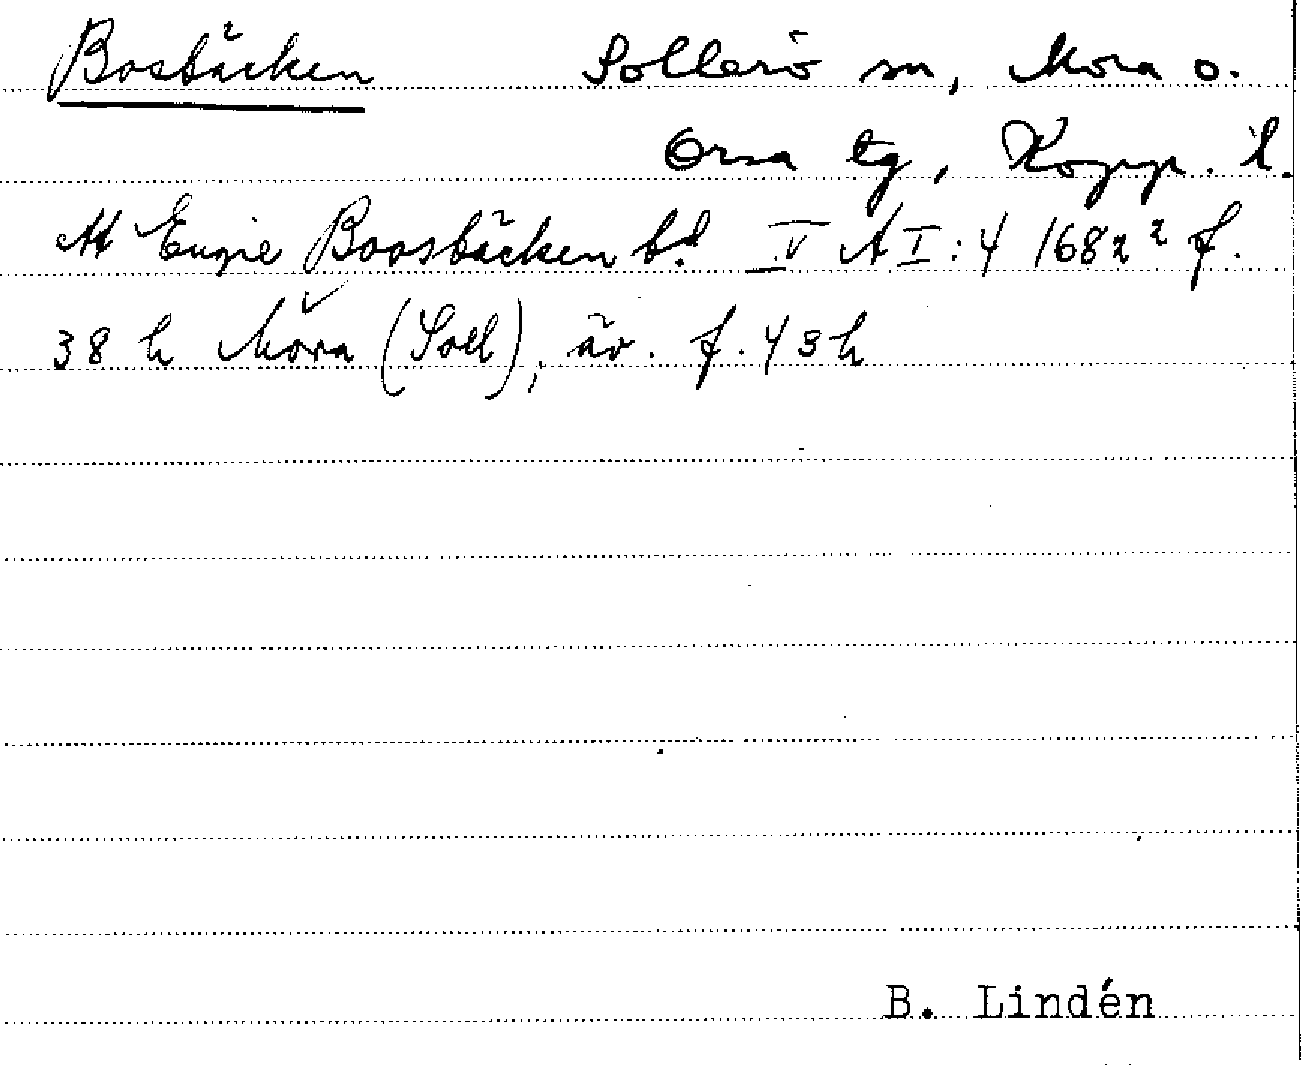 Bosbäcken Sollerö sn, Mora o.
Orsa tg, Kopp. l.
Att Engie Boosbäcken bd IV A I:4 1682² f.
38 h Mora (Soll), äv. f. 43 h
B. Lindén